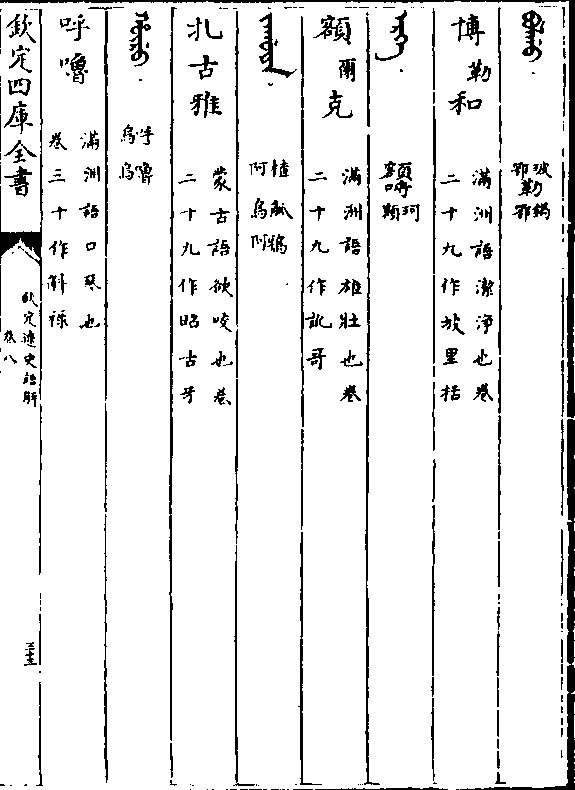 玻鄂勒鍋鄂
博勒和 滿洲語潔淨也卷
二十九作放里括
額哷珂額
額爾克 滿洲語雄壯也卷
二十九作訛哥
楂阿呱烏鴉阿
扎古雅 蒙古語欲咬也卷
二十九作昭古牙
呼烏嚕烏
呼嚕 滿洲語口琴也
卷三十作斛祿
欽定四庫全書
欽定遼史語解
卷八